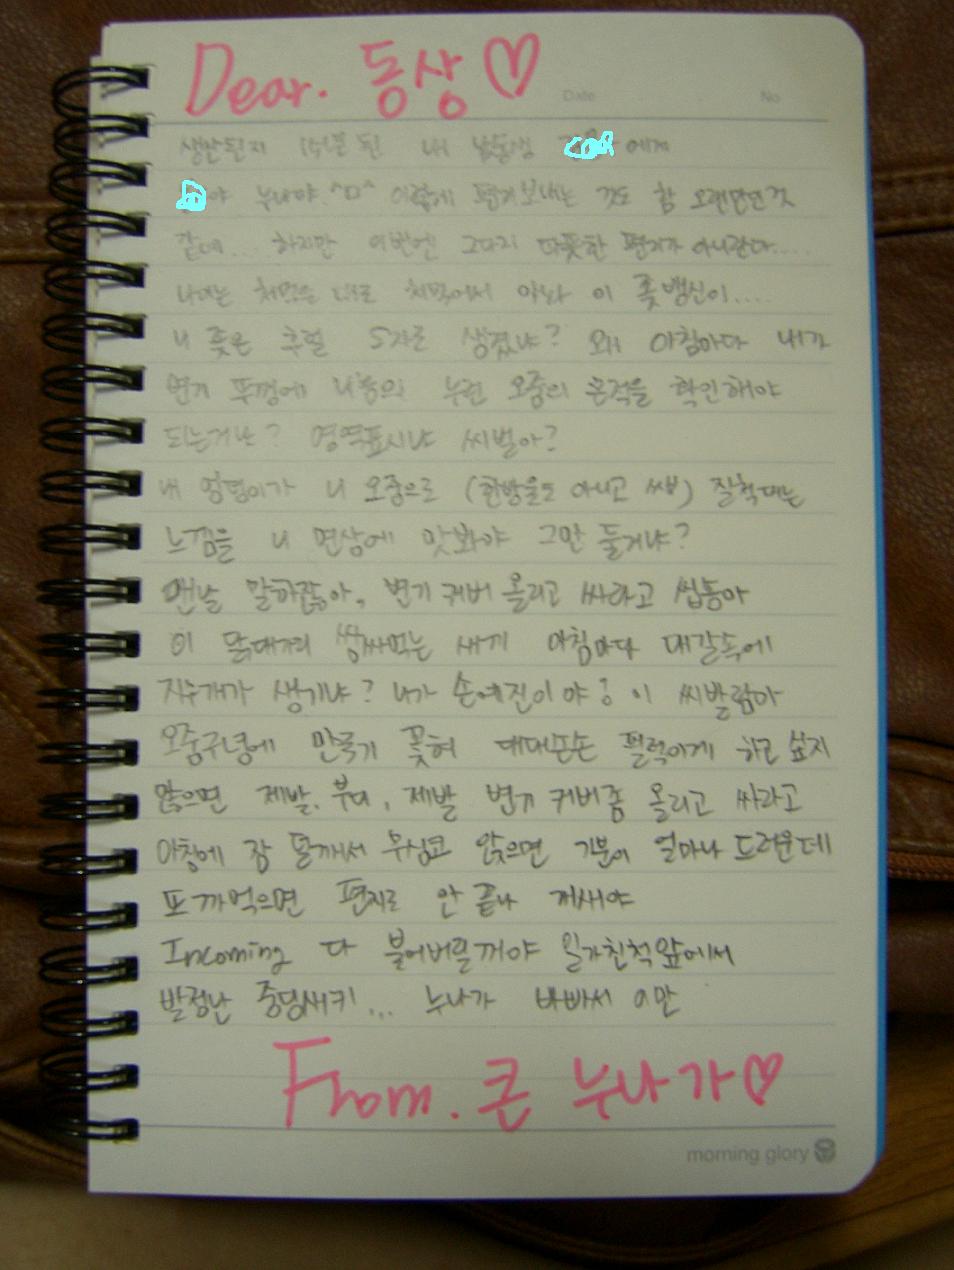 Dear. 동상♡
Date No
생산된지 15년 된 내 남동생 에게
야 누나야.^ㅁ^ 이렇게 편지보내는 것도 참 오랜만인것
같네... 하지만 이번엔 그다지 따뜻한 편지가 아니란다....
나이는 처먹을 대로 처먹어서 아놔 이 좆뱅신이....
니 좆은 후렐 S자로 생겼냐? 왜 아침마다 내가
변기 뚜껑에 니놈의 누런 오줌의 흔적을 확인해야
되는거냐? 영역표시냐 씨벌아?
내 엉덩이가 니 오줌으로 (한방울도 아니고 씨부) 질척대는
느낌을 니 면상에 맛봐야 그만 둘거냐?
맨날 말하잖아, 변기 커버 올리고 싸라고 씹통아
이 닭대가리 쌈싸먹는 새끼 아침마다 대갈속에
지우개가 생기냐? 니가 손예진이야? 이 씨발람아
오줌구녕에 만국기 꽂혀 대대손손 펄럭이게 하고 싶지
않으면 제발, 부디, 제발 변기 커버좀 올리고 싸라고
아침에 잠 덜깨서 무심코 앉으면 기분이 얼마나 드러운데
또 까먹으면 편지로 안 끝나 개새야
Incoming 다 불어버릴꺼야 일가친척앞에서
발정난 중딩새키... 누나가 바빠서 이만
From. 큰 누나가♡
morning glory